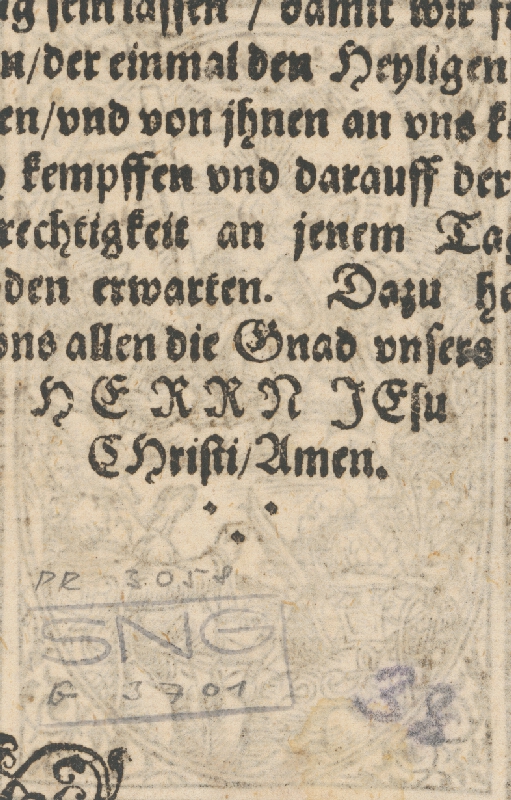 sein lassen / damit wir
n/der einmal den Heyligen
en/vnd von jhnen an vns
kempffen vnd darauff der
rechtigkeit an jenem Tag
den erwarten. Dazu
vns allen die Gnad vnsers
HERRN JEsu
CHristi/Amen.
PR 3058
SNG
G 3701
38